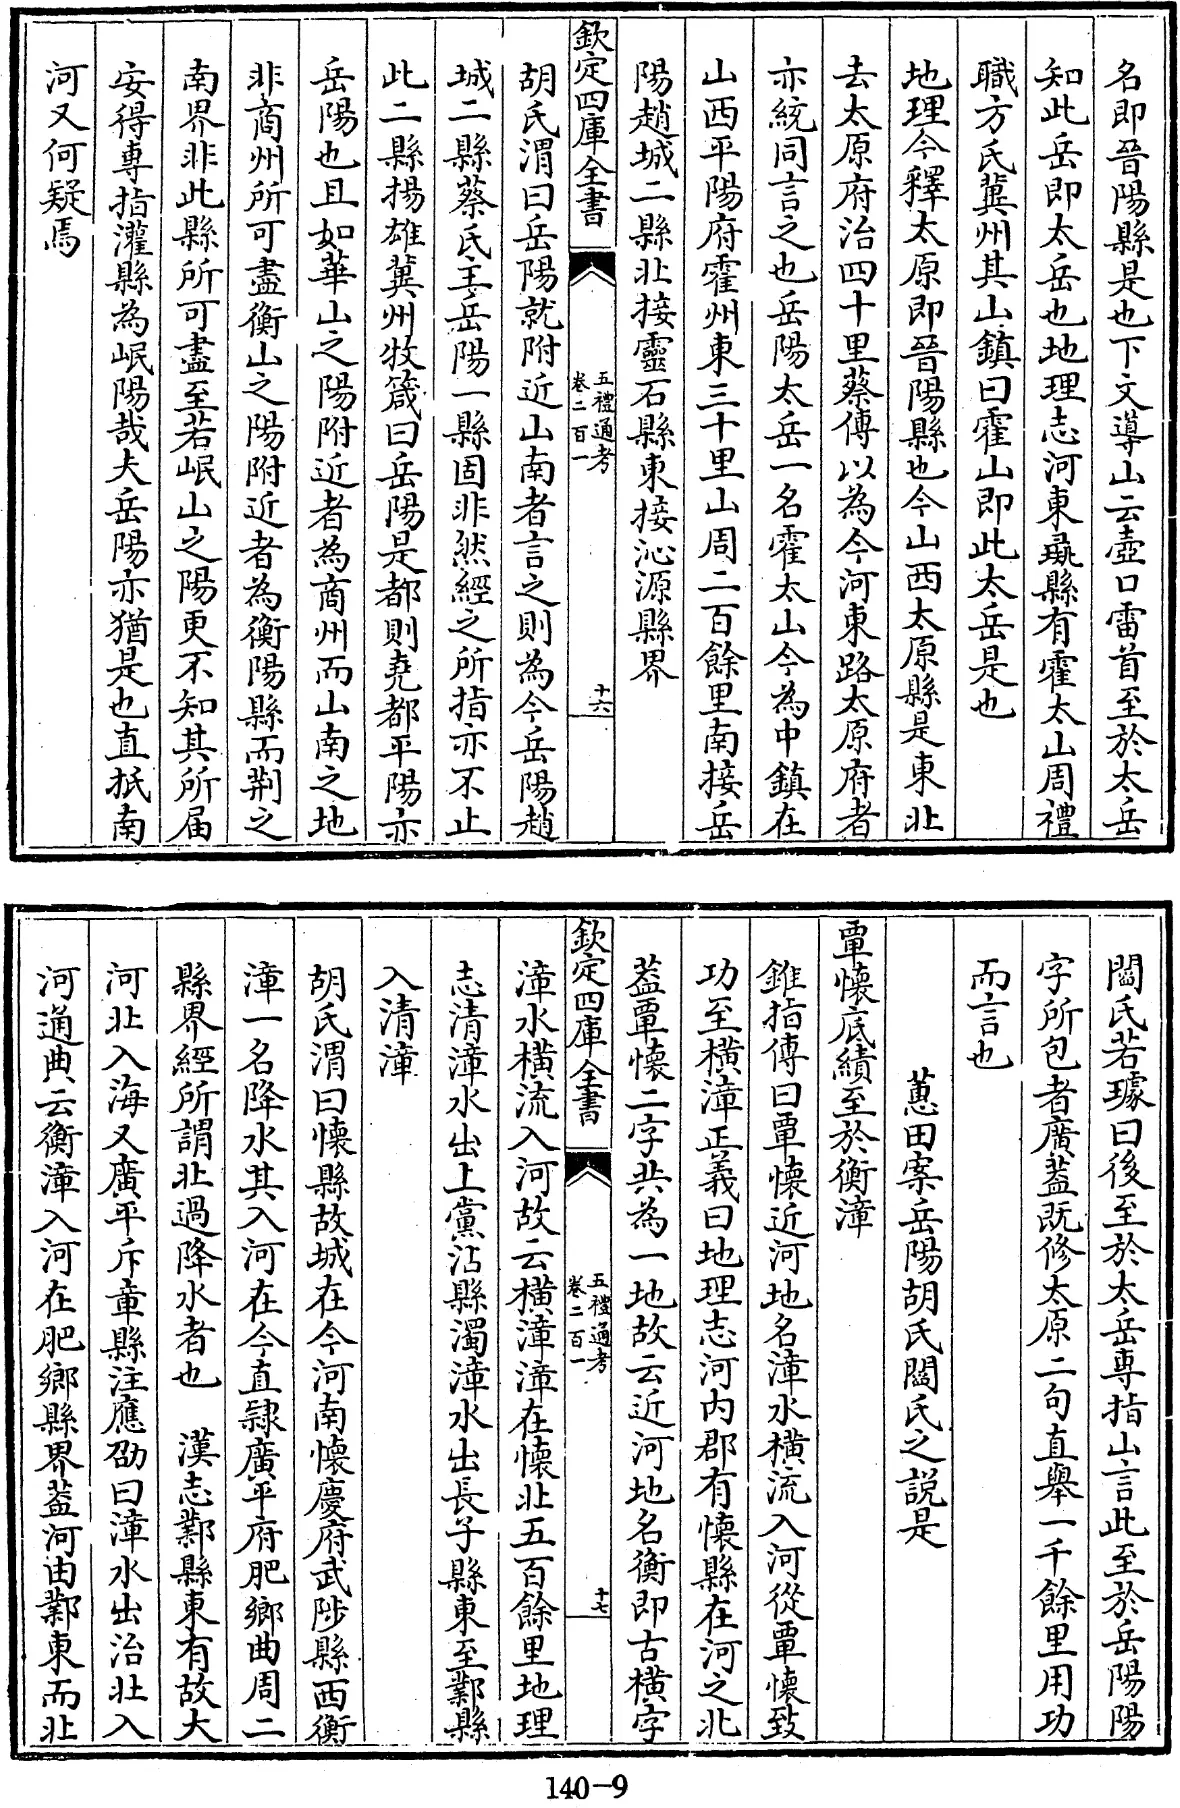 名即晉陽縣是也下文導山云壺口雷首至於太岳
知此岳即太岳也地理志河東彘縣有霍太山周禮
職方氏冀州其山鎮曰霍山即此太岳是也
地理今釋太原即晉陽縣也今山西太原縣是東北
去太原府治四十里蔡傳以為今河東路太原府者
亦統同言之也岳陽太岳一名霍太山今為中鎮在
山西平陽府霍州東三十里山周二百餘里南接岳
陽趙城二縣北接靈石縣東接沁源縣界
欽定四庫全書
五禮通考
卷二百一
十六
胡氏渭曰岳陽就附近山南者言之則為今岳陽趙
城二縣蔡氏主岳陽一縣固非然經之所指亦不止
此二縣揚雄冀州牧箴曰岳陽是都則堯都平陽亦
岳陽也且如華山之陽附近者為商州而山南之地
非商州所可盡衡山之陽附近者為衡陽縣而荆之
南界非此縣所可盡至若岷山之陽更不知其所届
安得専指灌縣為岷陽哉大岳陽亦猶是也直抵南
河又何疑焉
閻氏若璩曰後至於太岳専指山言此至於岳陽陽
字所包者廣葢既修太原二句直舉一千餘里用功
而言也
蕙田案岳陽胡氏閻氏之說是
覃懷底績至於衡漳
錐指傳曰覃懷近河地名漳水橫流入河從覃懷致
功至橫漳正義曰地理志河內郡有懷縣在河之北
葢覃懷二字共為一地故云近河地名衡即古橫字
欽定四庫全書
五禮通考
卷二百一
十七
漳水橫流入河故云橫漳漳在懷北五百餘里地理
志清漳水出上黨沾縣濁漳水出長子縣東至鄴縣
入清漳
胡氏渭曰懷縣故城在今河南懷慶府武陟縣西衡
漳一名降水其入河在今直隸廣平府肥鄉曲周二
縣界經所謂北過降水者也　漢志鄴縣東有故大
河北入海又廣平斥章縣注應劭曰漳水出治北入
河通典云衡漳入河在肥鄉縣界葢河由鄴東而北
140-9